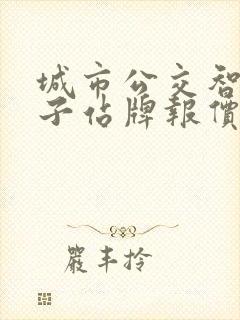 城市公交智
子佔牌報價
嚴丰拎